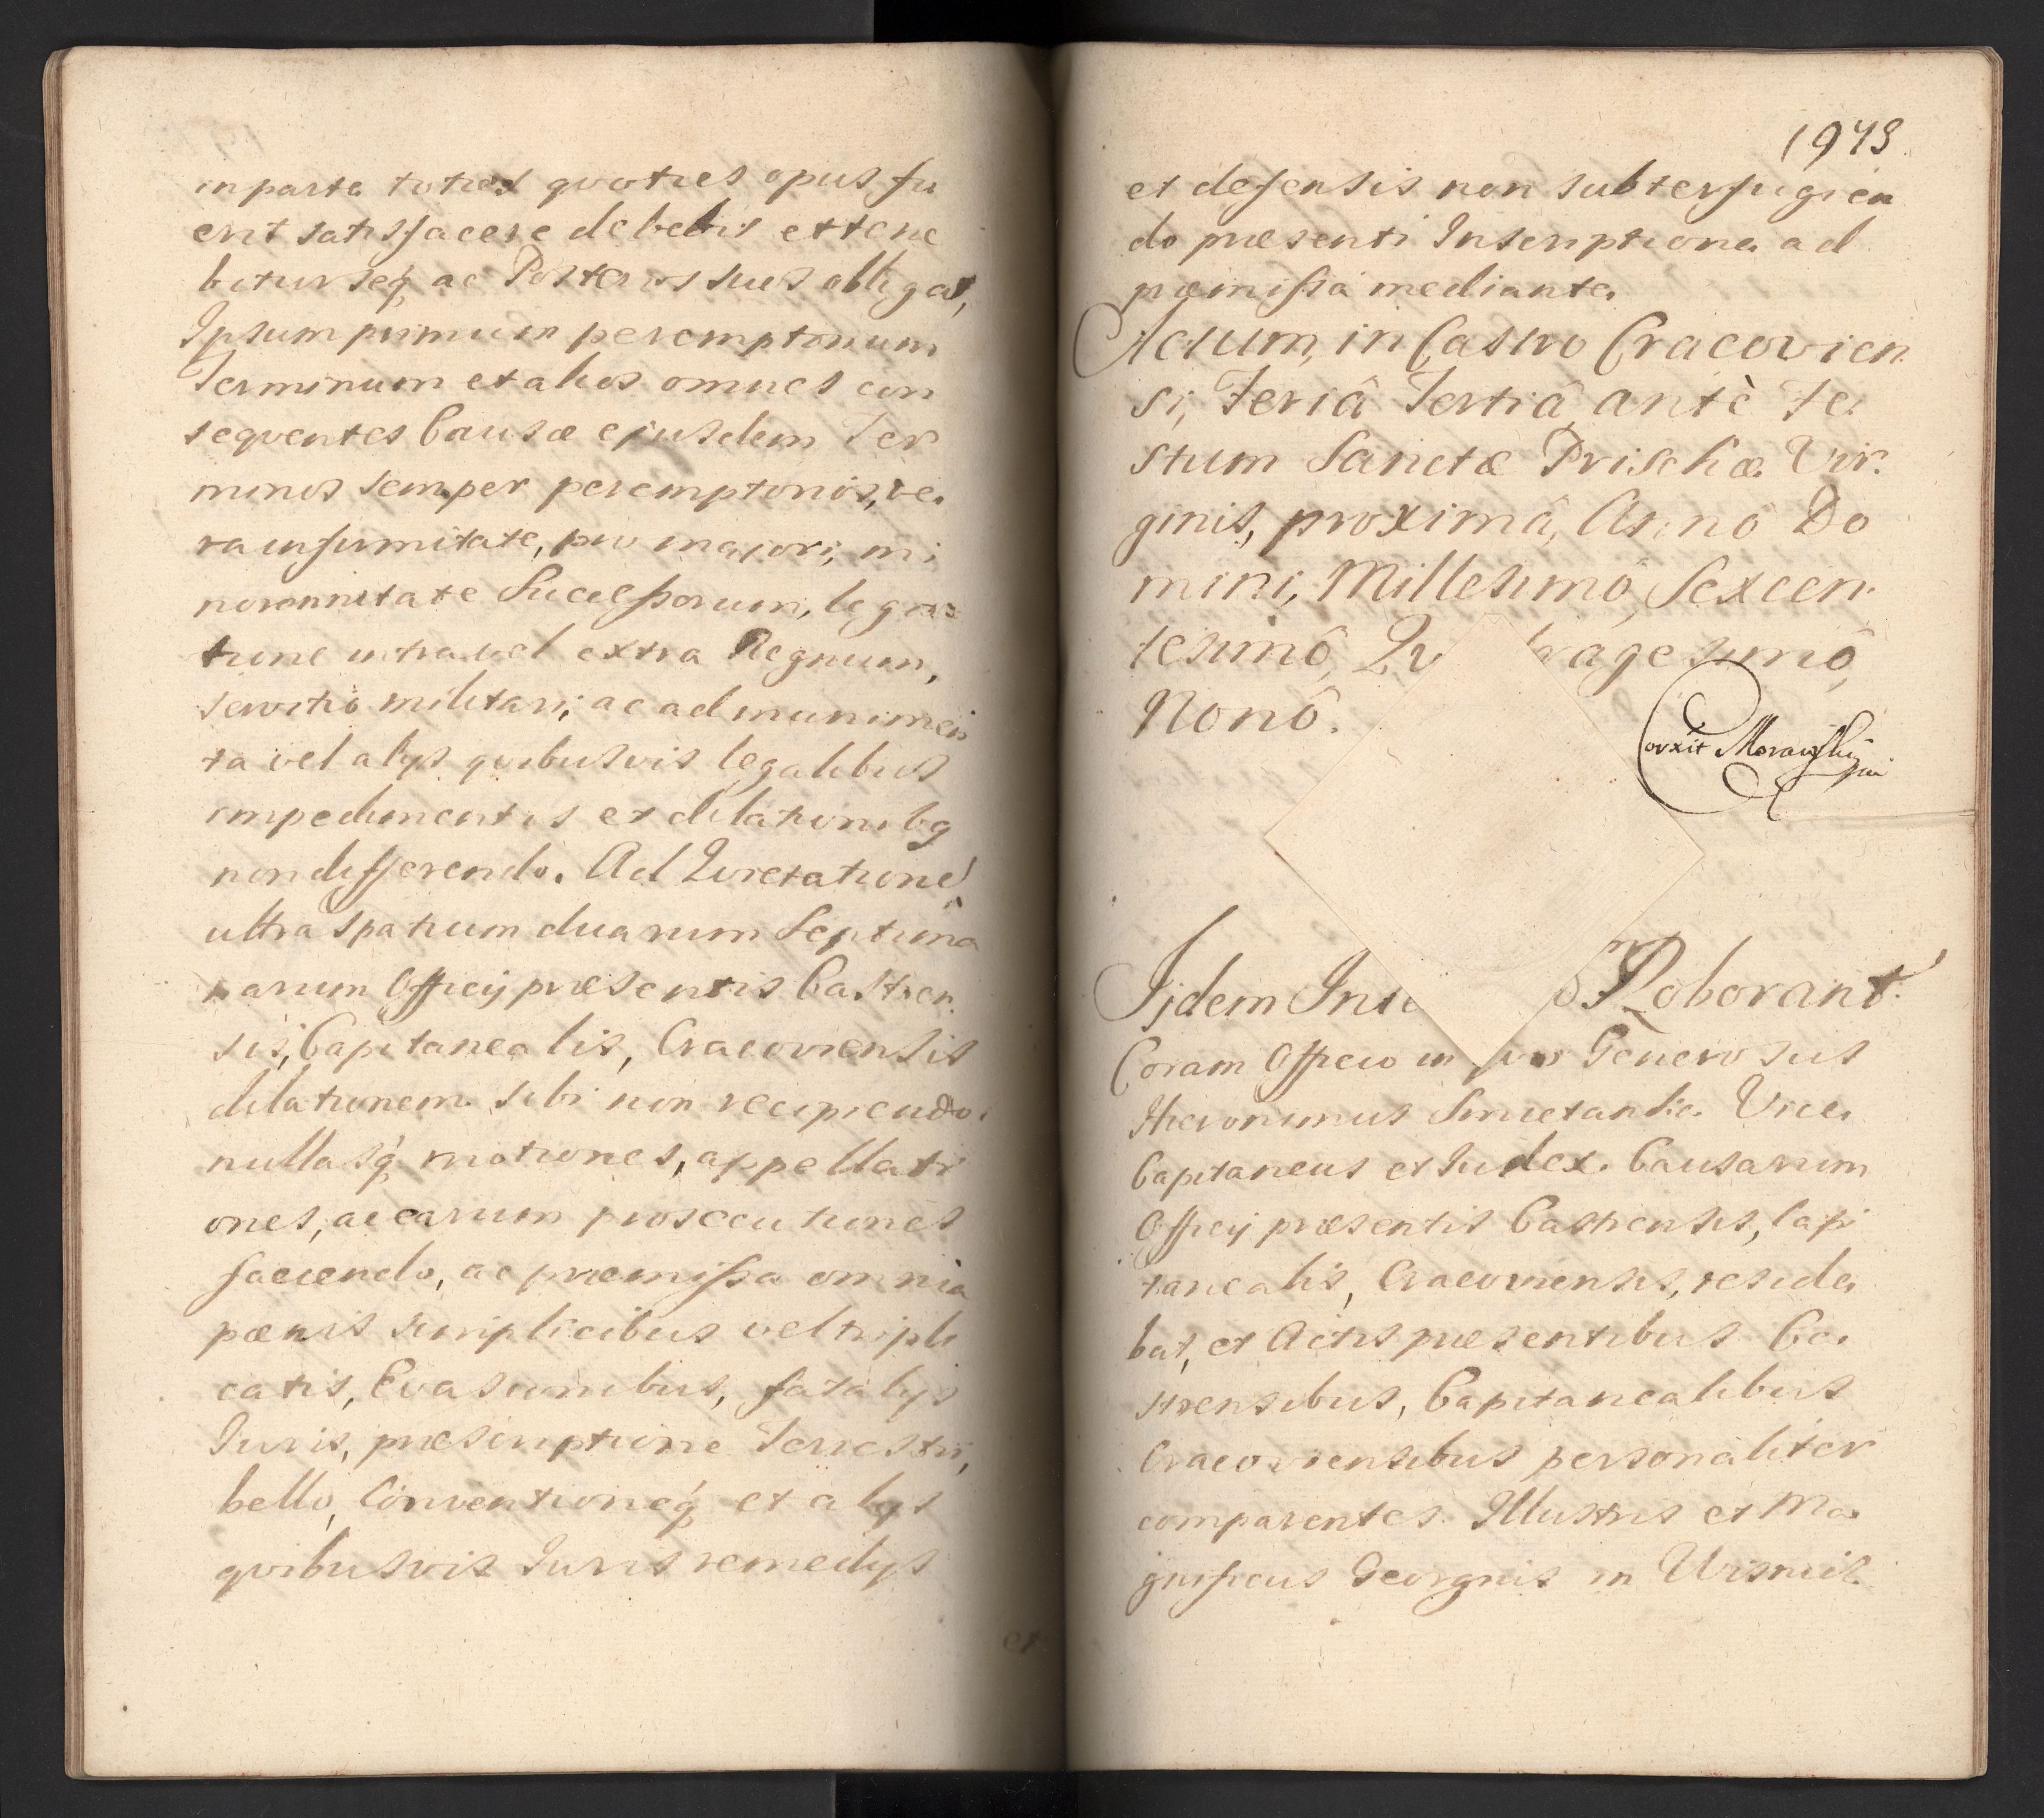 in parte toties qvoties opus fu
erit satisfacere debebit et tene
bitur seq₃ ac Posteros suos obligat,
Ipsum primum peremptorium
Terminum et alios omnes con
seqventes Causæ ejusdem Ter
minos semper peremptorios, ve
ra infirmitate, pro majori, mi
norennitate Successorum, lega
tione intra vel extra Regnum,
servitio militari, ac ad munimen
ta vel alys qvibusvis legalibus
impedimentis et dilationibq
non differendo. Ad Qvietatione
ultra spatium duarum Septima
narum Officij præsentis Castren
sis, Capitanealis, Cracoviensis
dilationem sibi non recipiendo.
nullasq₃ motiones, appellati
ones, ac earum prosecutiones
faciendo, ac præmissa omnia
pænis simplicibus vel tripli
catis, Evasionibus, fatalys
Iuris, præscriptione Terrestri,
bello, Conventioneq₃ et alys
qvibusvis Iuris remedys
et
1973
et defensis non subterfugien
do præsenti Inscriptione ad
præmissa mediante.
Actum, in Castro Cracovien
si, Feriâ Tertiâ antè Fe
stum Sanctæ Prischæ Vir
ginis, proximâ, Annô Do
mini, Millesimô, Sexcen
tesimô, Qv ragesimô,
Nonô.
Corxit Morawskij
mp
Ijdem Ins o Roborant.
Coram Officio in Generosus
Hieronimus Smietanka Vice
Capitaneus et Iudex Causarum
Officij præsentis Castrensis, Capi
tanealis, Cracoviensis, reside
bat, et Actis præsentibus Ca
strensibus, Capitanealibus
Cracoviensibus personaliter
comparentes Illustris et Ma
gnificus Georgius in Wisnic